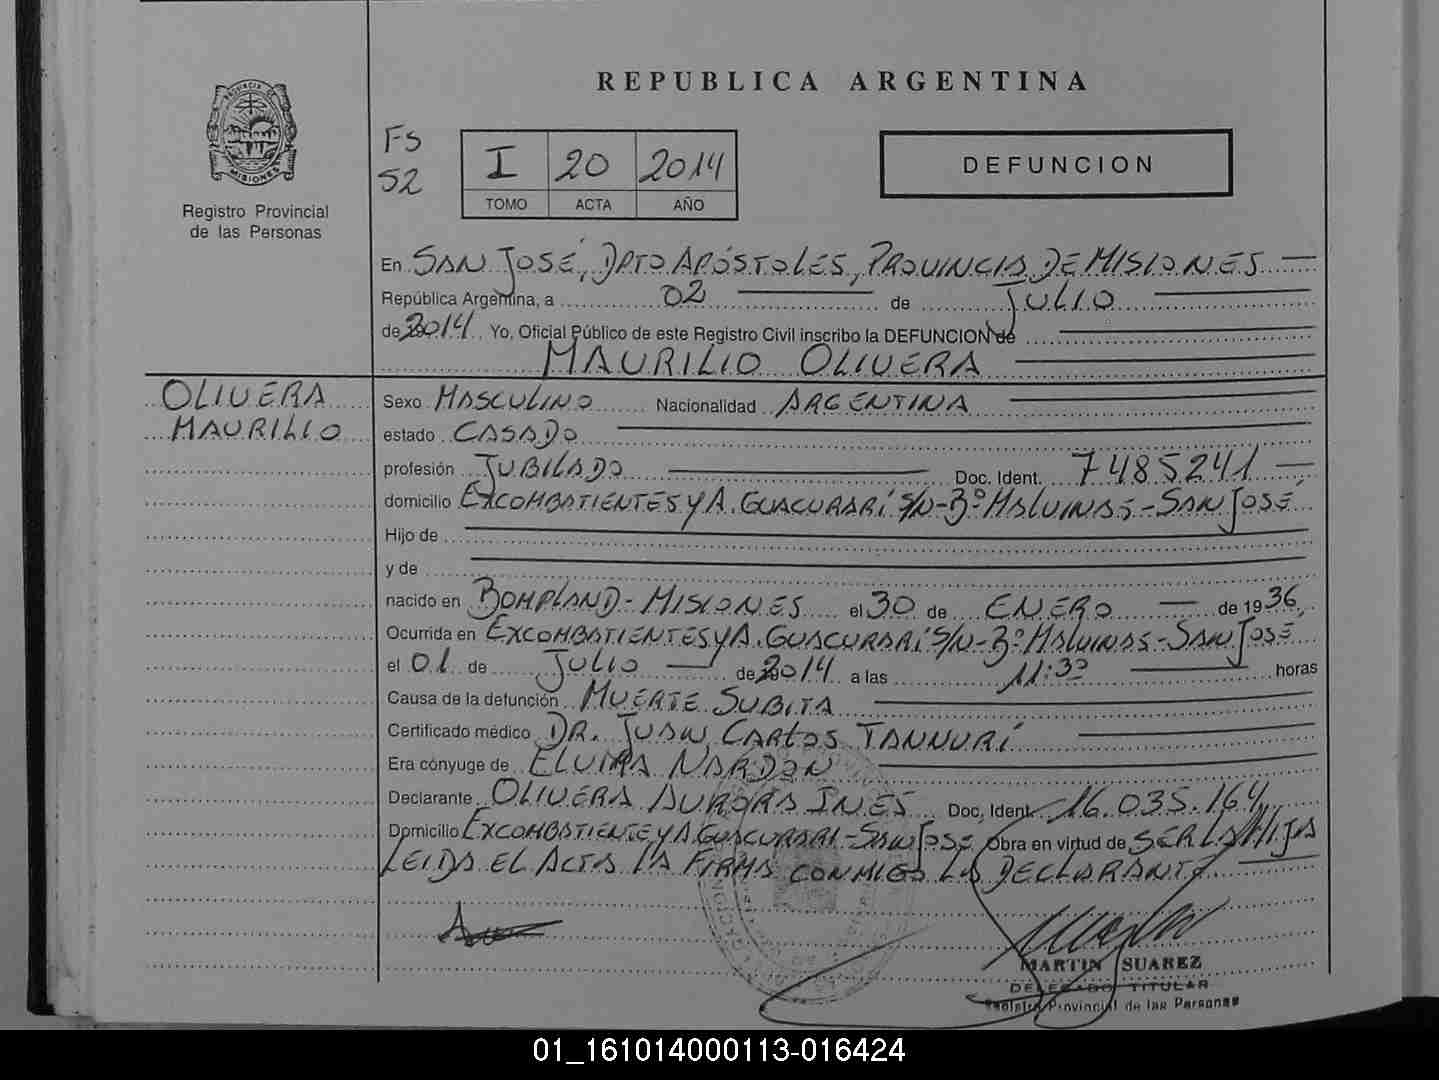 REPUBLICA ARGENTINA
PROVINCIA DE
MISIONES
Registro Provincial
de las Personas
FS
52
I 20 2014
TOMO ACTA AÑO
DEFUNCION
En SAN JOSÉ, DPTO APÓSTOLES, PROVINCIA DE MISIONES
República Argentina, a 02 de JULIO
de 2014 Yo, Oficial Público de este Registro Civil inscribo la DEFUNCION de
MAURILIO OLIVERA
OLIVERA
MAURILIO
Sexo MASCULINO Nacionalidad ARGENTINA
estado CASADO
profesión JUBILADO Doc. Ident. 7485241
domicilio EXCOMBATIENTES Y A. GUACURARÍ S/N-Bº MALVINAS-SAN JOSÉ
Hijo de
y de
nacido en BOMPLAND-MISIONES el 30 de ENERO de 1936
Ocurrida en EXCOMBATIENTES Y A. GUACURARÍ S/N-Bº MALVINAS-SAN JOSÉ
el 01 de JULIO de 2014 a las 11:30 horas
Causa de la defunción MUERTE SUBITA
Certificado médico DR. JUAN CARLOS TANNURÍ
Era cónyuge de ELVIRA NARDON
Declarante OLIVERA AURORA INES Doc. Ident. 16.035.164
Domicilio EXCOMBATIENTE Y A GUACURARI-SAN JOSE Obra en virtud de SER LA HIJA
LEIDA EL ACTA LA FIRMA CONMIGO LA DECLARANTE
MARTIN SUAREZ
DELEGADO TITULAR
Registro Provincial de las Personas
01_161014000113-016424